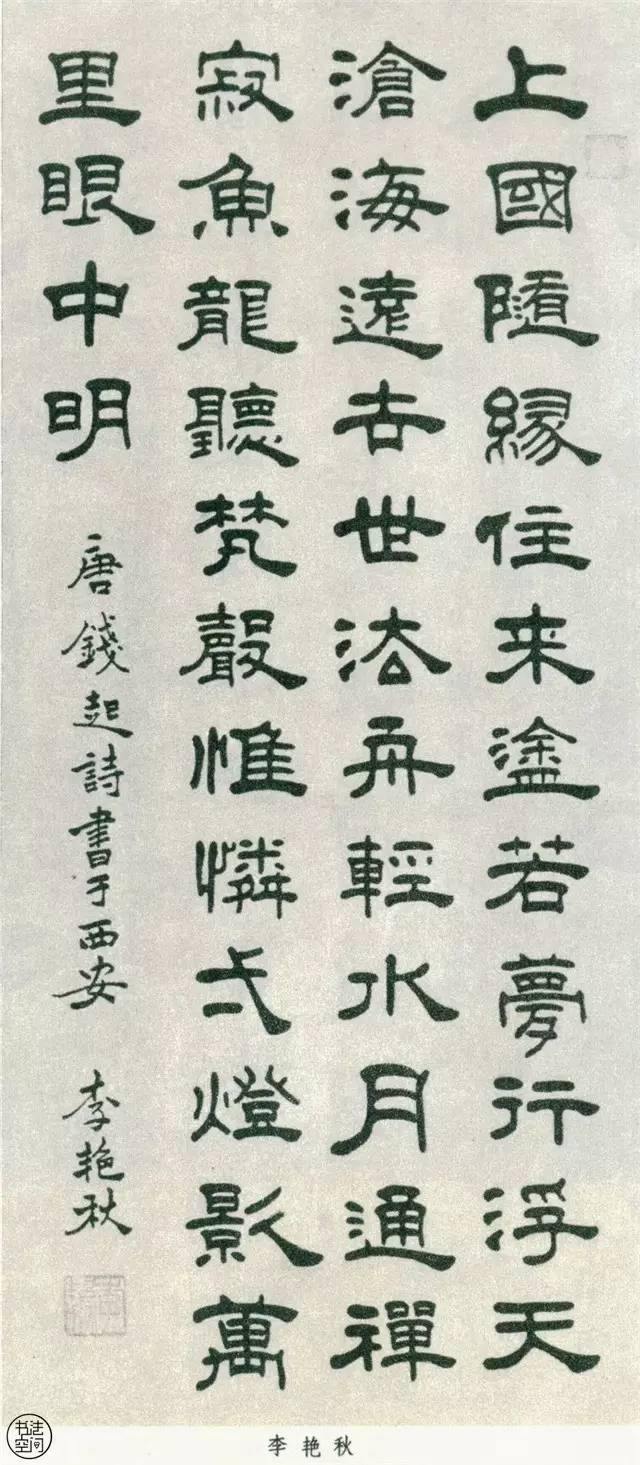 上國隨緣住来塗若夢行浮天
滄海遠去世法舟輕水月通禪
寂魚龍聽梵聲惟憐弌燈影萬
里眼中明 唐錢起詩書于西安 李艳秋
书法空间
李艳秋